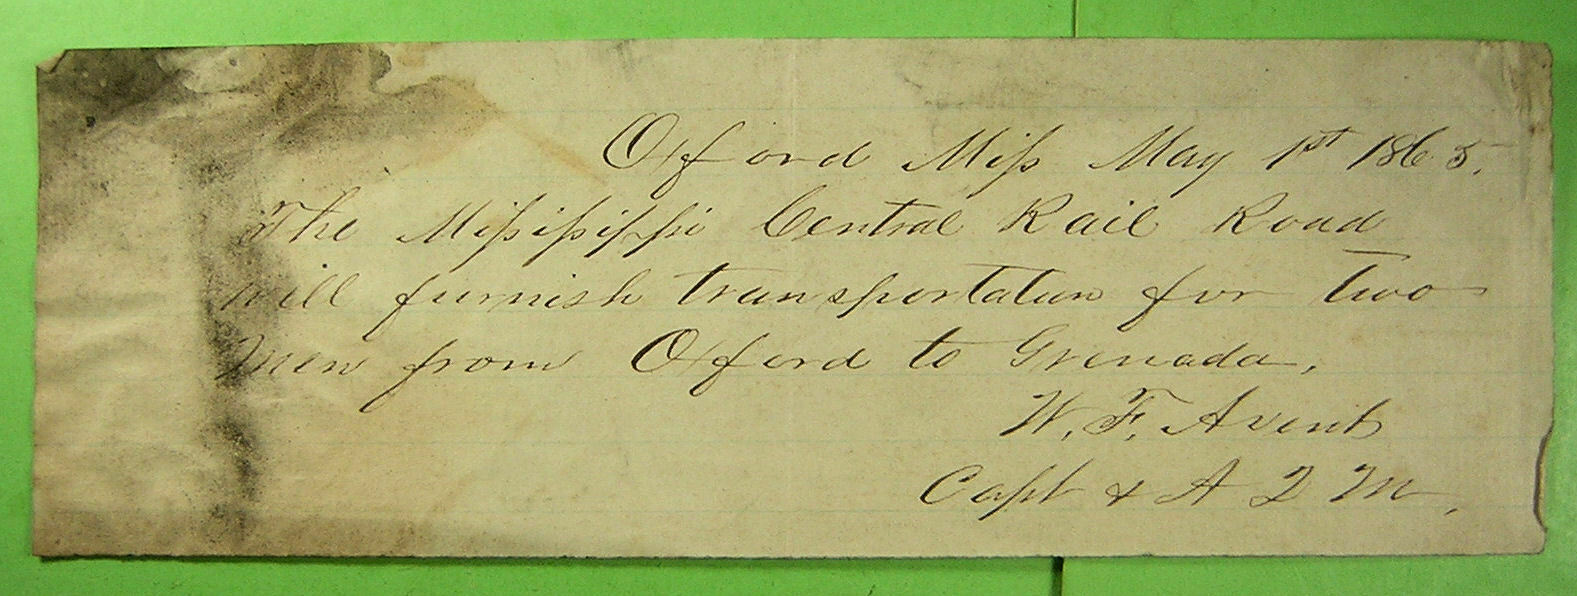 Oxford Miss May 1st 1865.
The Mississippi Central Rail Road
will furnish transportation for two
men from Oxford to Grenada.
W. F. Avent
Capt & A Q M.